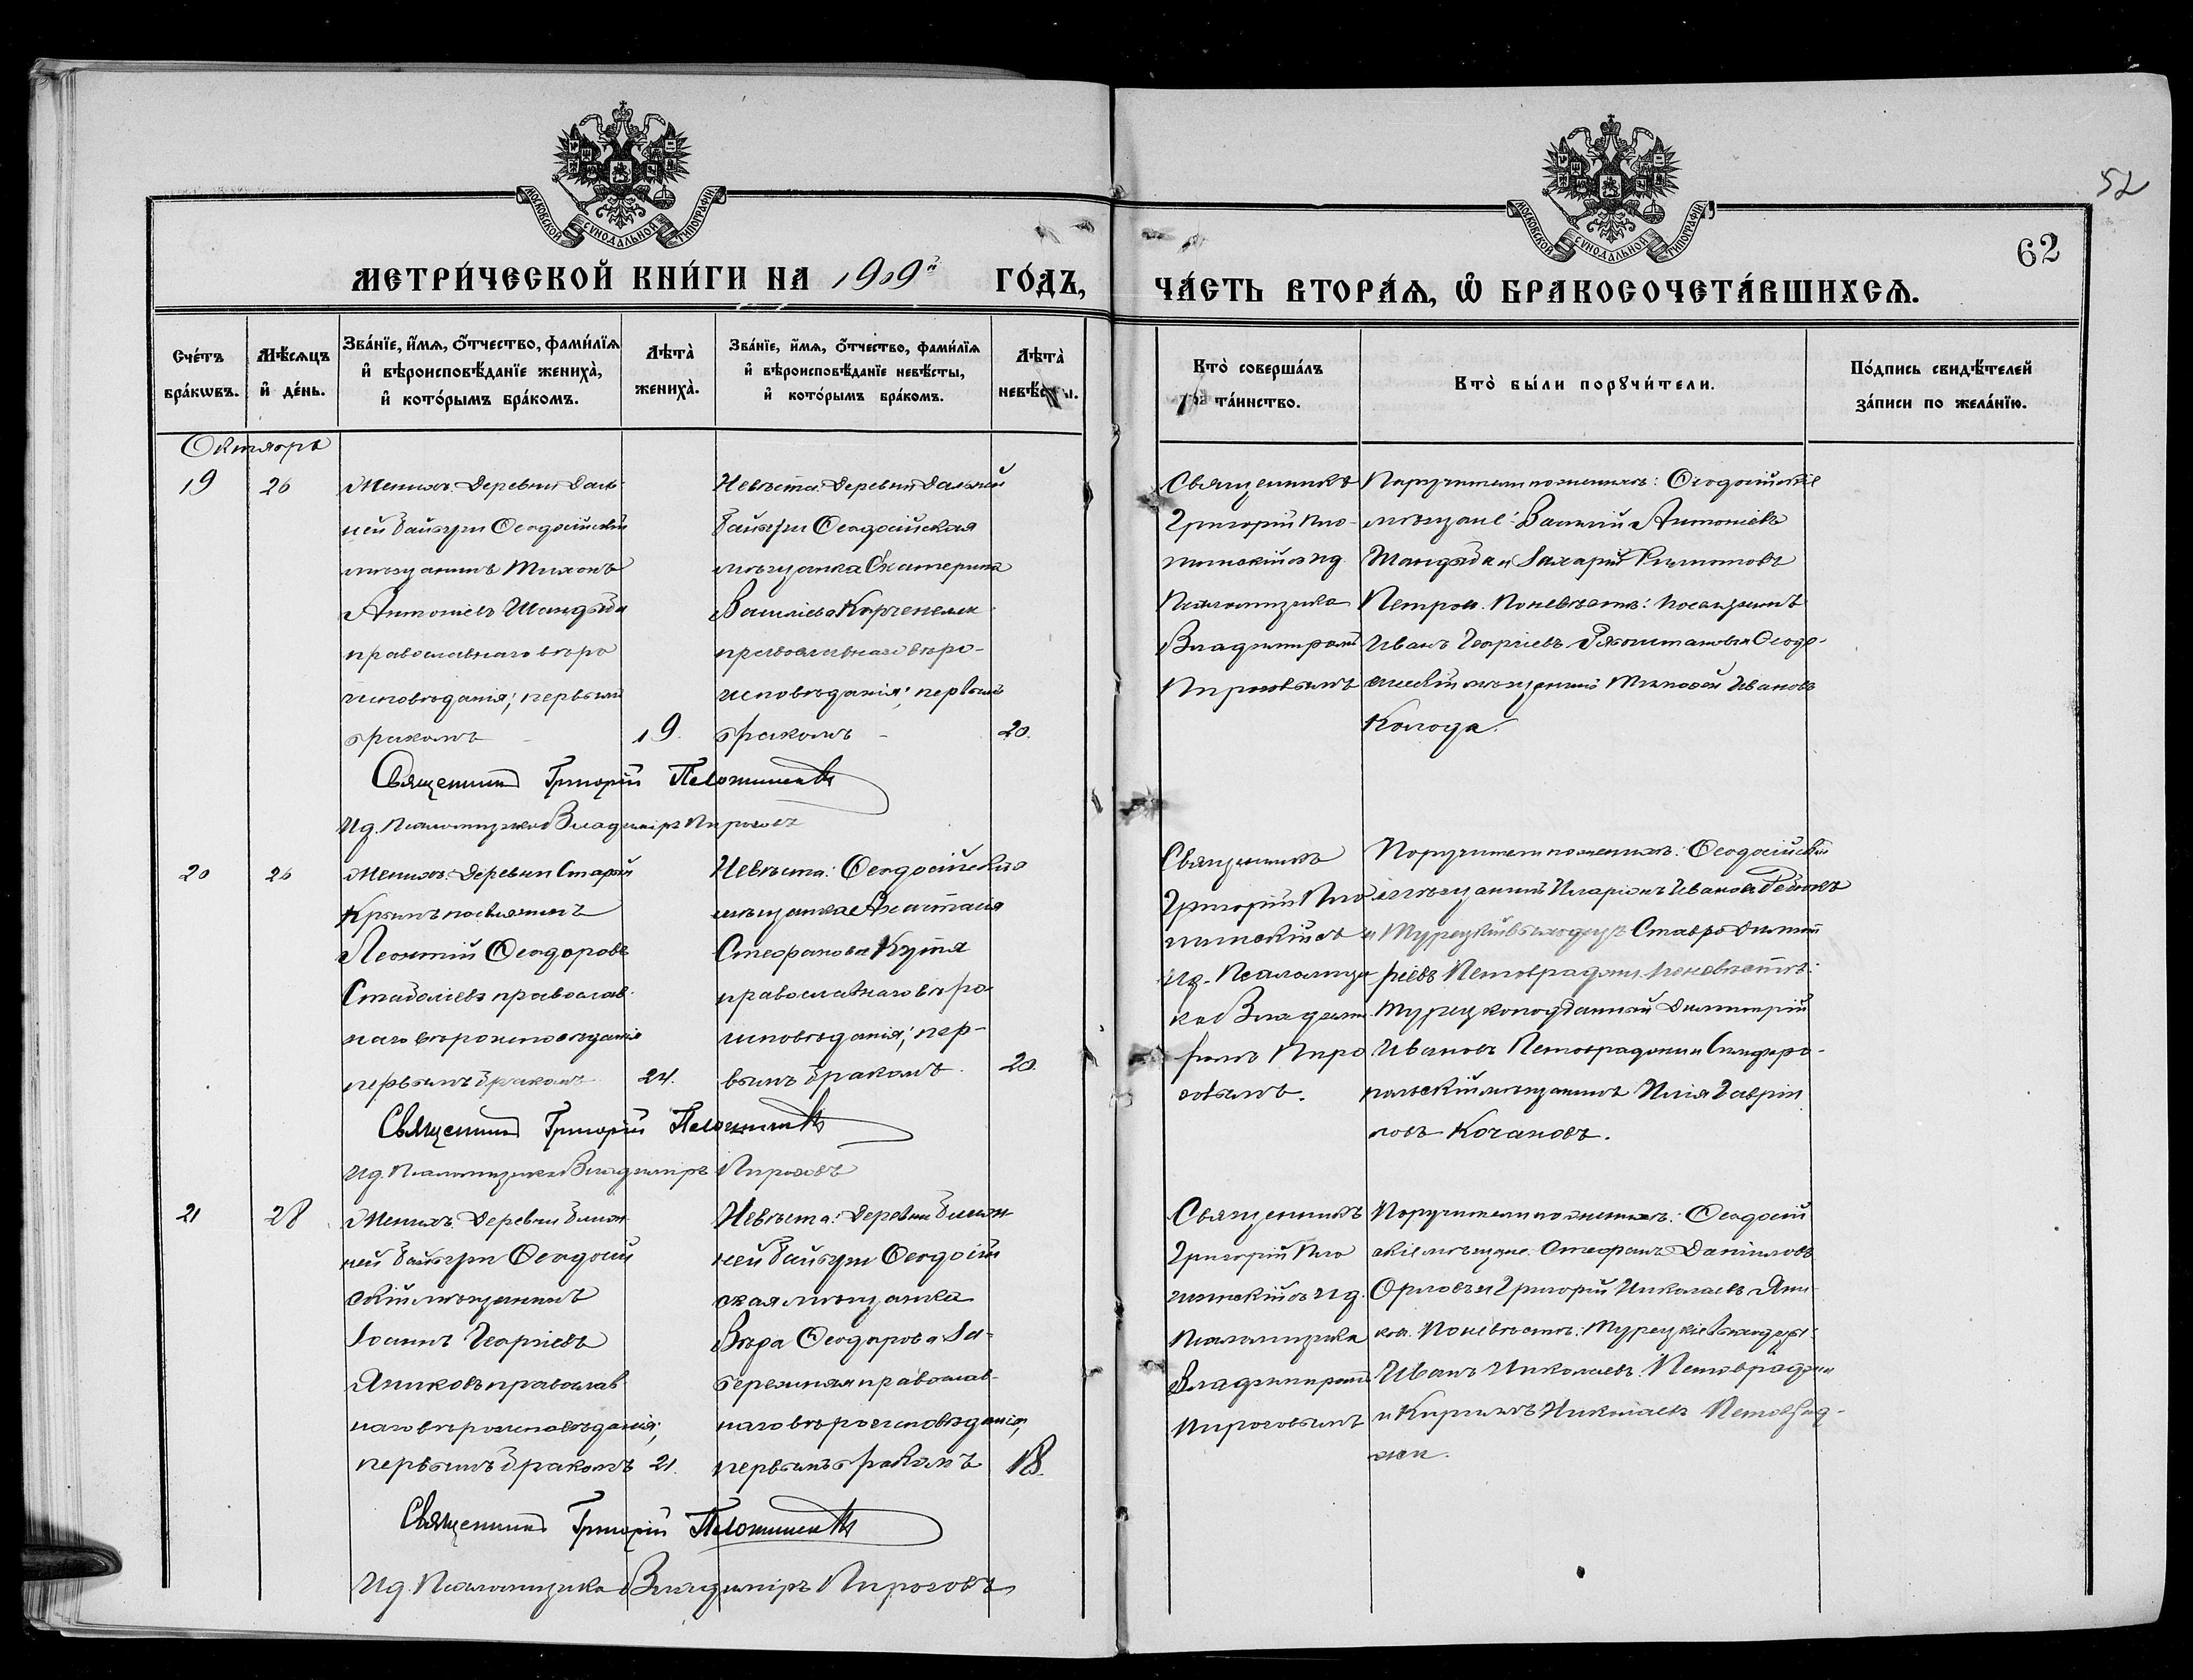 52
62
МОСКОВСКОЙ СѴНОДАЛЬНОЙ ТИПОГРАФІИ
МОСКОВСКОЙ СѴНОДАЛЬНОЙ ТИПОГРАФІИ
МЕТРИ́ЧЕСКОЙ КНИ́ГИ НА 1909й ГО́ДЪ,
ЧА́СТЬ ВТОРА́Ѧ, Ѽ БРАКОСОЧЕТА́ВШИХСѦ.
Сче́тъ бра́кѡвъ.
Мѣ́сѧцъ и҆ де́нь.
Зва́нїе, и҆́мѧ, ѻ҆́тчество, фами́лїѧ
и҆ вѣроисповѣ́данїе жениха̀,
и҆ кото́рымъ бра́комъ.
Лѣта̀ жениха̀.
Зва́нїе, и҆́мѧ, ѻ҆́тчество, фами́лїѧ
и҆ вѣроисповѣ́данїе невѣ́сты,
и҆ кото́рымъ бра́комъ.
Лѣта̀ невѣ́сты.
Кто̀ соверша́лъ
та́инство.
Кто̀ бы́ли порꙋчи́тели.
По́дпись свидѣ́телей
за́писи по жела́нїю.
Октябрь
19
26
Женихъ: Деревни Даль-
ней Байбуги Ѳеодосійскій
мѣщанинъ Тихонъ
Антоніевъ Шандыба
православнаго вѣро
исповѣданія; первымъ
бракомъ
19.
Невѣста: Деревни Дальней
Байбуги Ѳеодосійская
мѣщанка Екатерина
Василіева
православнаго вѣро-
исповѣданія; первымъ
бракомъ
20.
Священникъ
Григорій Пло-
тинскій съ ид.
Псаломщика
Владиміромъ
Пироговымъ
Поручители по женихѣ: Ѳеодосійскіе
мѣщане: Василій Антоніевъ
Шандыба и Захарій Филиповъ
Петров. По невѣстѣ: поселянинъ
Иванъ Георгіевъ и Ѳеодо-
сійскій мѣщанинъ Тимоѳей Ивановъ
Колода.
Священникъ Григорій
Ид. Псаломщика Владиміръ Пироговъ
20
26
Женихъ: Деревни Старый
Крымъ поселянинъ
Леонтій Ѳеодоровъ
православ-
наго вѣроисповѣданія
первымъ бракомъ
24.
Невѣста: Ѳеодосійская
мѣщанка Анастасія
Стефанова
православнаго вѣро
исповѣданія; пер-
вымъ бракомъ.
20.
Священникъ
Григорій Пло
тинскій съ
ид. Псаломщи
ка Влади-
міромъ Пиро
говымъ.
Поручители по женихѣ: Ѳеодосійскій
мѣщанинъ Иларіонъ Ивановъ
и Турецкій выходецъ Ставро Димит
ріевъ По невѣстѣ:
Турецкоподданный Димитрій
Ивановъ и Симферо-
польскій мѣщанинъ Илія Гаврiи
ловъ Кочановъ.
Священникъ Григорій
Ид. Псаломщика Владиміръ Пироговъ
21
28
Женихъ: Деревни Ближ
ней Байбуги Ѳеодосій
скій мѣщанинъ
Іоаннъ Георгіевъ
Яниковъ православ
наго вѣроисповѣданія;
первымъ бракомъ
21.
Невѣста: Деревни Ближ-
ней Байбуги Ѳеодосій
ская мѣщанка
Вѣра Ѳеодорова За-
бережная православ-
наго вѣроисповѣданія,
первымъ бракомъ
18.
Священникъ
Григорій Пло
тинскій съ ид.
Псаломщика
Владиміромъ
Пироговымъ
Поручители по женихѣ: Ѳеодосій
скіе мѣщане: Стефанъ Даниловъ
Орловъ и Григорій Николаевъ Яни-
ков. По невѣстѣ: Турецкіе выходцы:
Иванъ Николаевъ
и Кириллъ Николаевъ
Священникъ Григорій
Ид. Псаломщика Владиміръ Пироговъ